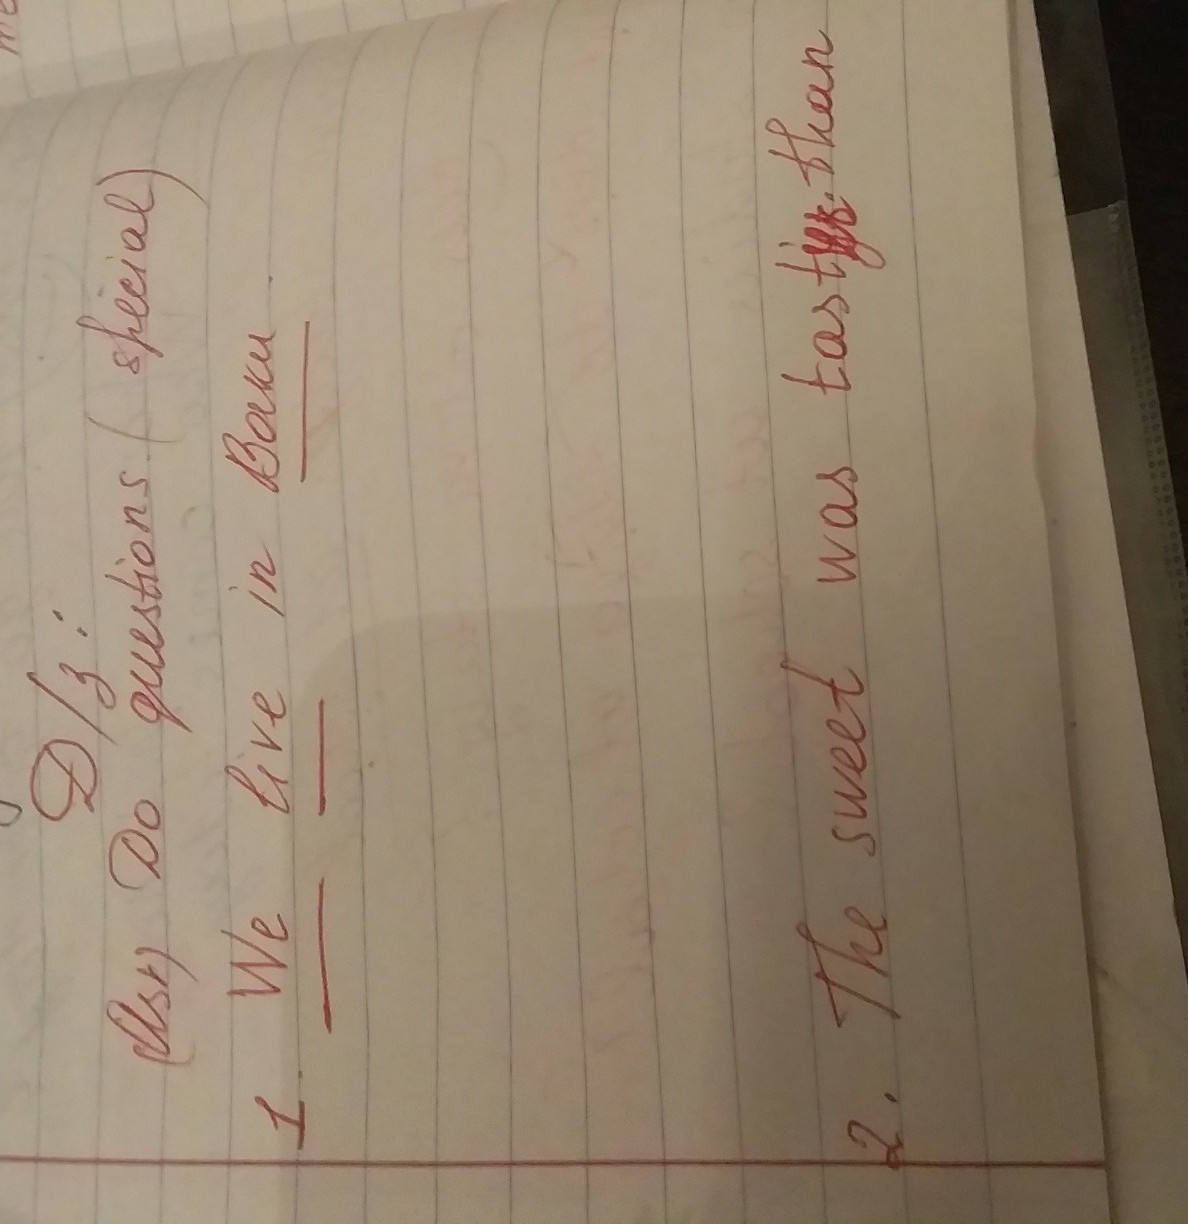 D/з:
(Ask) Do questions (special)
1 We live in Baku
2. The sweet was than